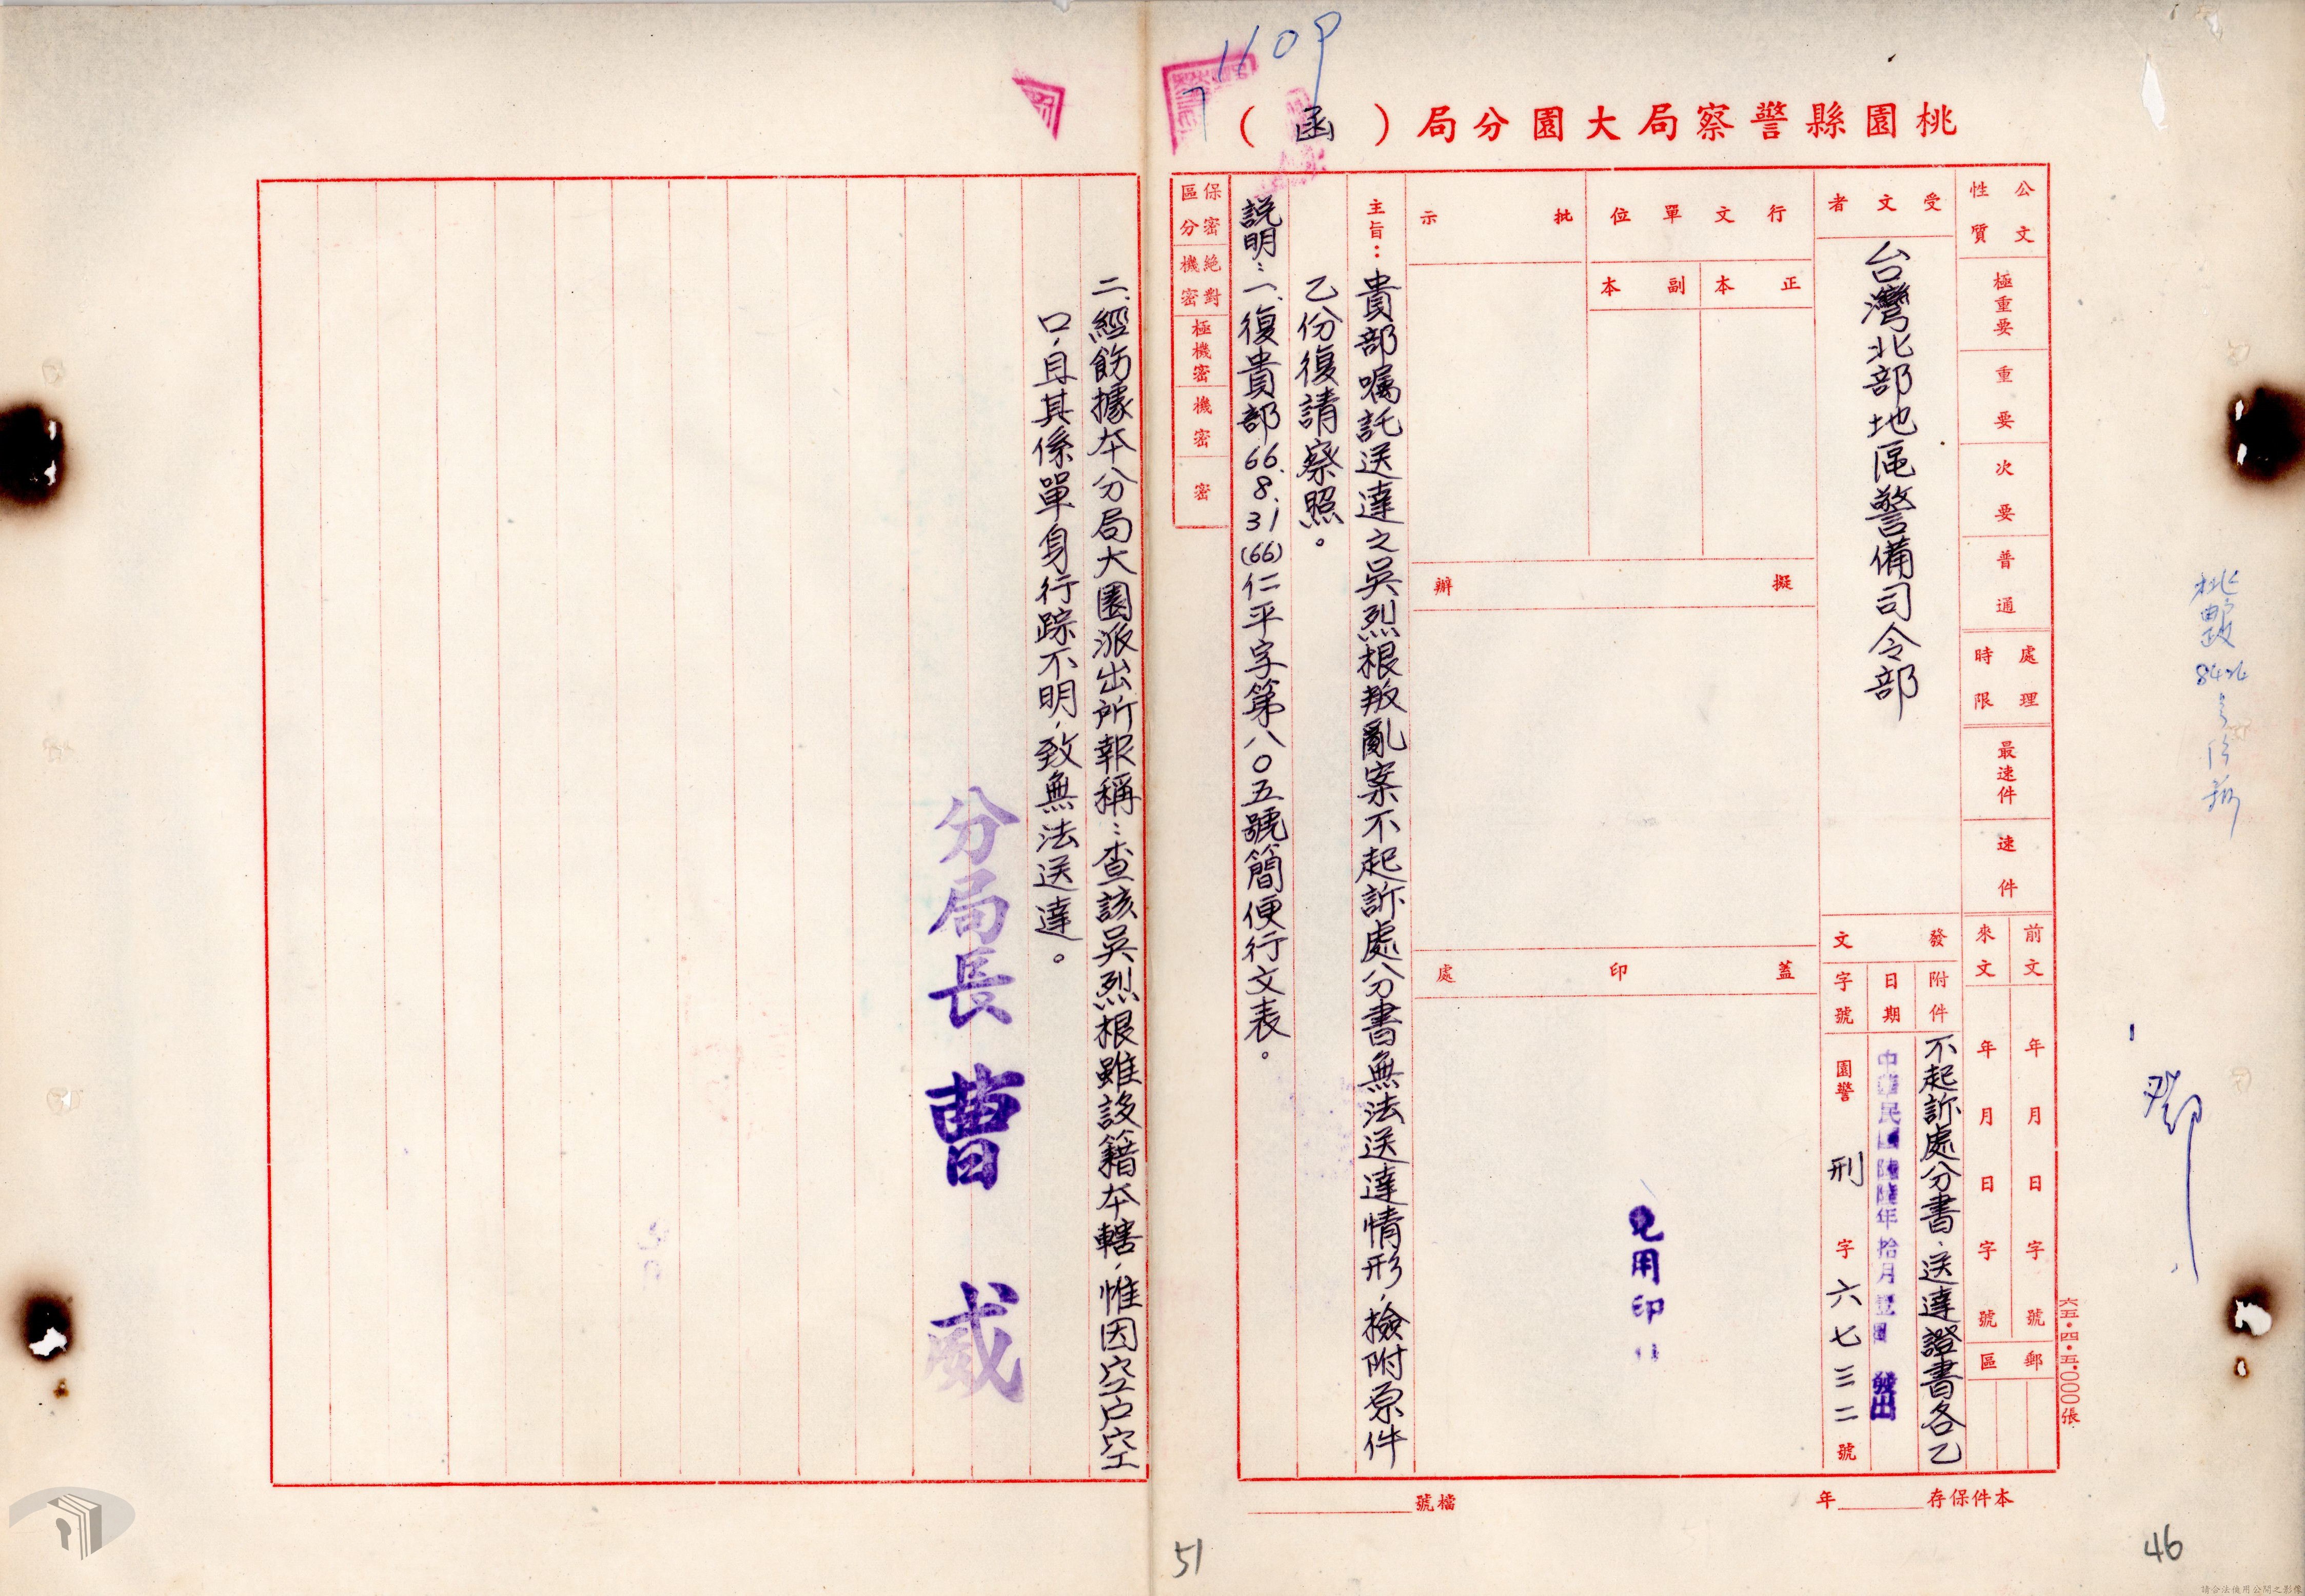 桃園縣警察局大園分局（函）
公文性質
極重要
重要
次要
普通
處理時限
最速件
速件
前文 年 月 日 字 號
來文 年 月 日 字 號
郵區
受文者
台灣北部地區警備司令部
發文
附件
不起訴處分書、送達證書各乙
日期
中華民國陸陸年拾月 日 發出
字號
園警 刑 字 六七三二 號
行文單位
正本
副本
批示
擬辦
蓋印處
免用印
主旨：貴部囑託送達之吳烈根叛亂案不起訴處分書無法送達情形，檢附原件
乙份復請察照。
說明：一、復貴部66.8.31(66)仁平字第八〇五號簡便行文表。
保密區分
絕對機密
極機密
機密
密
二、經飭據本分局大園派出所報稱：查該吳烈根雖設籍本轄，惟因空户空
口，且其係單身行踪不明，致無法送達。
分局長 曹 威
本件保存 年
檔號
六五·四·五·000張
110
51
46
請合法使用公開之影像